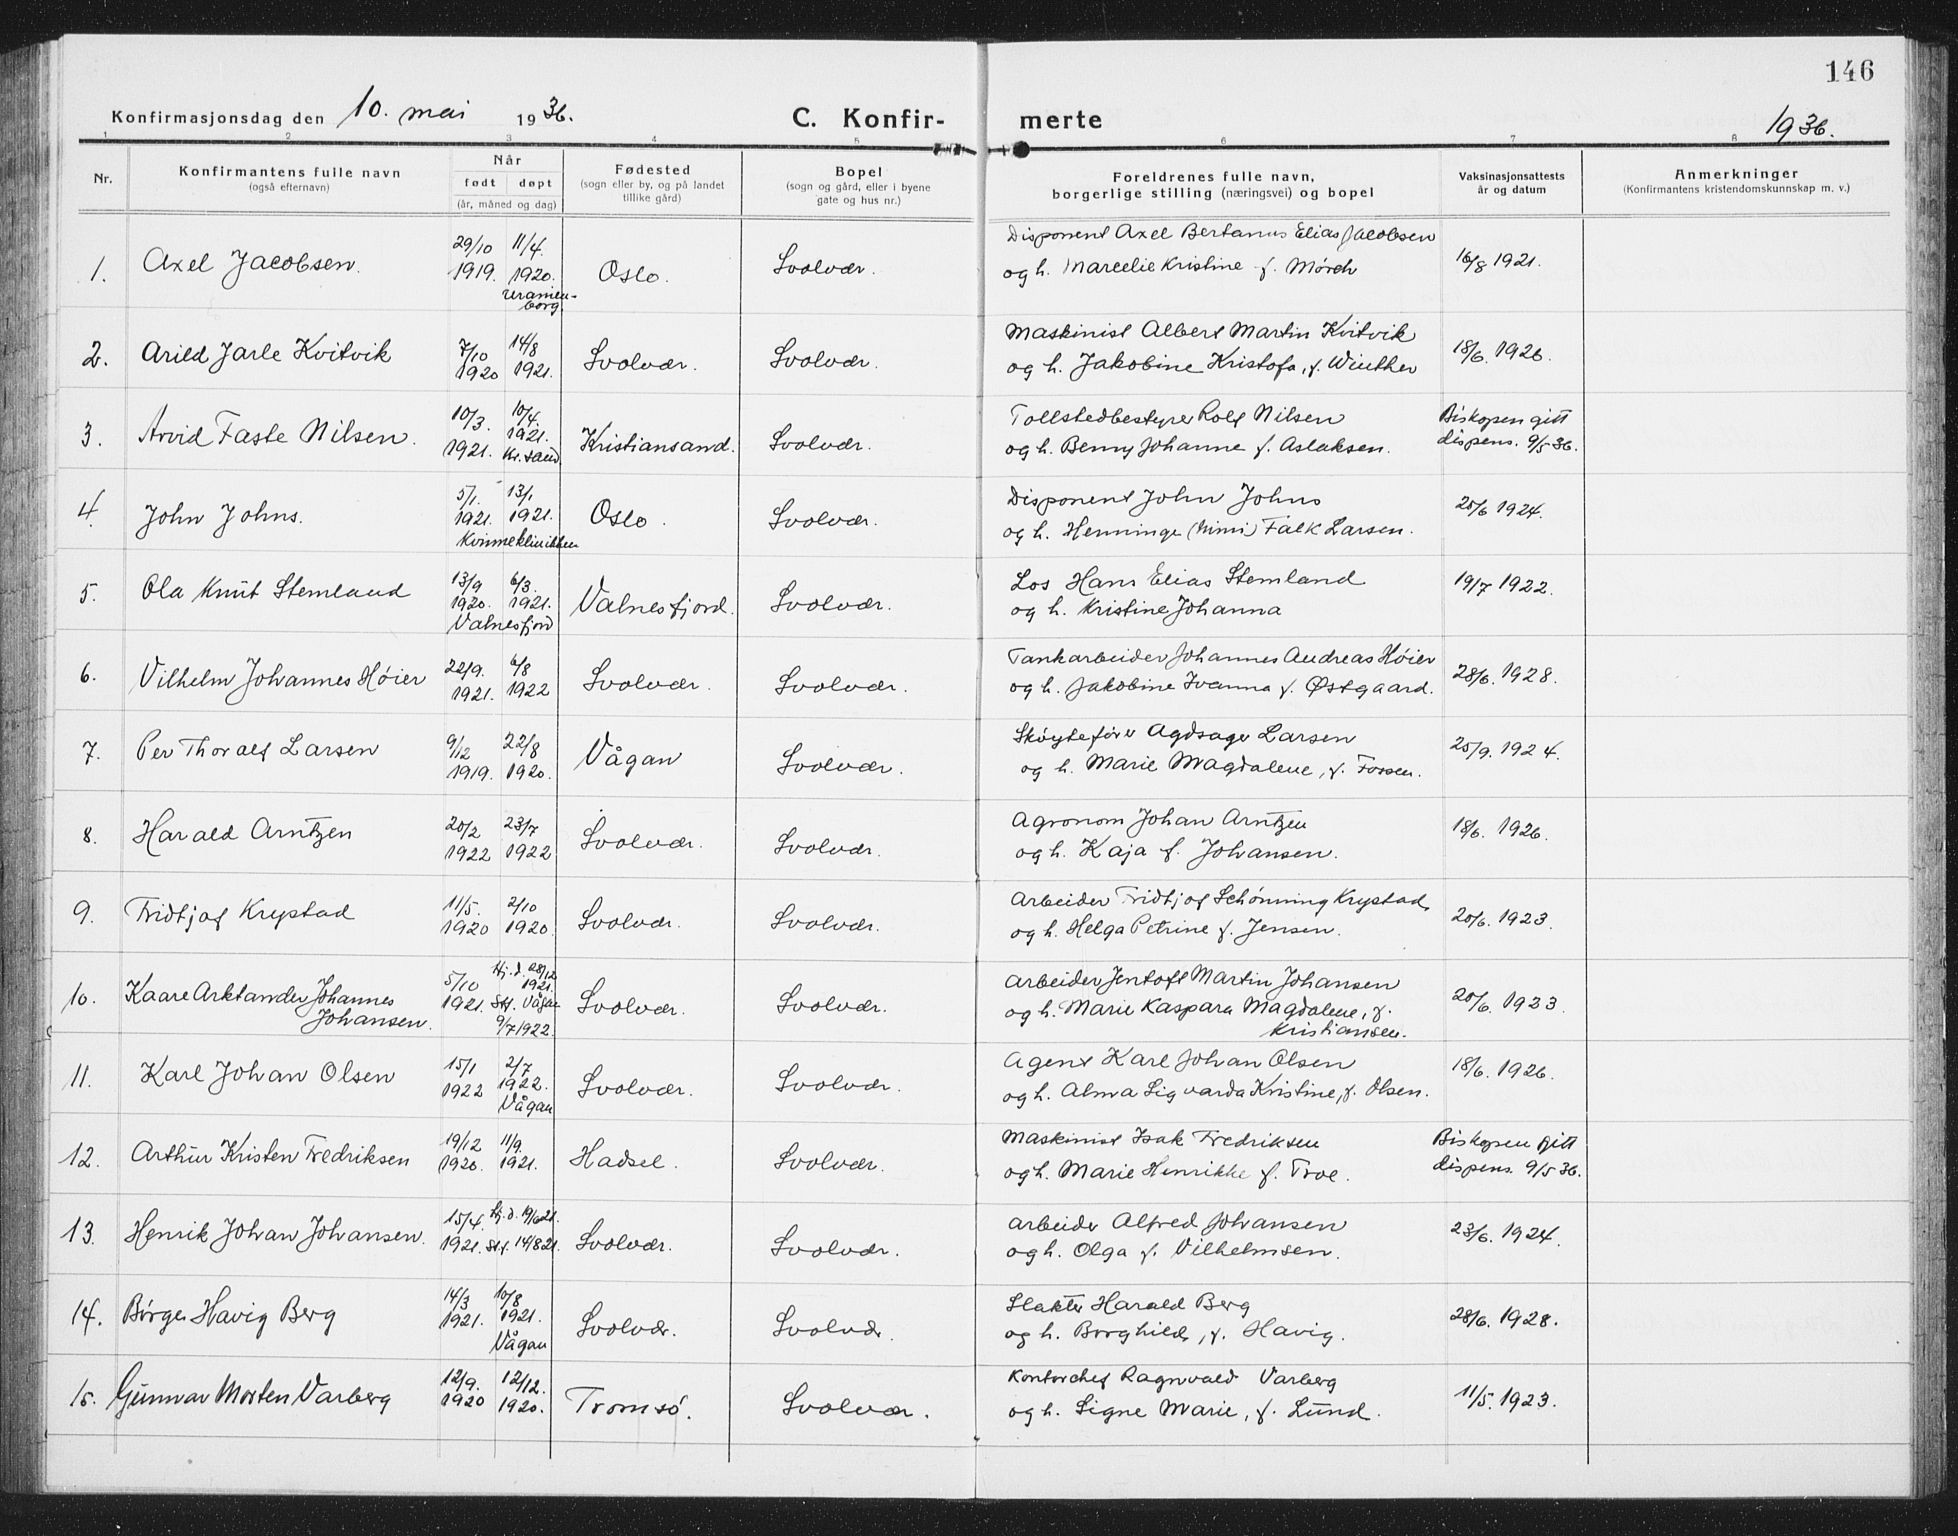 146
Konfirmasjonsdag den 10. mai 1936. C. Konfir- merte 1936.
1 2 3 4 5 6 7 8
Nr. Konfirmantens fulle navn (også efternavn) Når født døpt (år, måned og dag) Fødested (sogn eller by, og på landet tillike gård) Bopel (sogn og gård, eller i byene gate og hus nr.) Foreldrenes fulle navn, borgerlige stilling (næringsvei) og bopel Vaksinasjonsattests år og datum Anmerkninger (Konfirmantens kristendomskunnskap m. v.)
1. Axel Jacobsen. 29/10 1919. 11/4. 1920. Uranienborg. Oslo. Svolvær. Disponent Axel Bertanus Elias Jacobsen
og h. Marcelie Kristine f. Mørch 16/8 1921.
2. Arild Jarle Kvitvik 7/10 1920 14/8 1921. Svolvær. Svolvær. Maskinist Albert Martin Kvitvik
og h. Jakobine Kristofa, f. Winther 18/6. 1926.
3. Arvid Faste Nilsen. 10/3. 1921. 10/4. 1921. Kr.sand. Kristiansand. Svolvær. Tollstedbestyrer Rolf Nilsen
og h. Benny Johanne f. Aslaksen. Biskopen gitt dispens. 9/5 36.
4. John Johns. 5/1. 1921. 13/1 1921. Kvinneklinikken Oslo. Svolvær. Disponent John Johns
og h. Henninge (Mimi) Falk Larsen. 20/6 1924.
5. Ola Knut Stemland 13/9 1920. 6/3. 1921. Valnesfjord Valnesfjord. Svolvær. Los Hans Elias Stemland
og h. Kristine Johanna 19/7 1922.
6. Vilhelm Johannes Høier 22/9. 1921. 6/8 1922 Svolvær. Svolvær. Tankarbeider Johannes Andreas Høier
og h. Jakobine Ivanna f. Østgaard. 28/6. 1928.
7. Per Thoralf Larsen 9/12 1919. 22/8 1920. Vågan Svolvær. Skøytefører Agdsager Larsen
og h. Marie Magdalene, f. Fossen. 25/9. 1924.
8. Harald Arntzen 20/2 1922 23/7 1922 Svolvær. Svolvær. Agronom Johan Arntzen
og h. Kaja f. Johansen. 18/6. 1926.
9. Fridtjof Krystad 11/5. 1920 2/10 1920. Svolvær. Svolvær. Arbeider Fridtjof Schønning Krystad,
og h. Helga Petrine f. Jensen. 20/6. 1923.
10. Kaare Arktander Johannes Johansen. 5/10 1921. Hj.d. 28/12 1921. Stf. Vågan 9/7 1922. Svolvær. Svolvær. Arbeider Jentoft Martin Johansen
og h. Marie Kaspara Magdalene, f. Kristiansen. 20/6. 1923.
11. Karl Johan Olsen 15/1 1922 2/7 1922. Vågan Svolvær. Svolvær. Agent Karl Johan Olsen
og h. Alma Sigvarda Kristine, f. Olsen. 18/6. 1926.
12. Arthur Kristen Fredriksen 19/12 1920. 11/9. 1921. Hadsel. Svolvær. Maskinist Isak Fredriksen
og h. Marie Henrikke f. Troe. Biskopen gitt dispens. 9/5 36.
13. Henrik Johan Johansen. 15/4. 1921. Hj.d. 19/6 21. Stf. 14/8 21. Svolvær. Svolvær. Arbeider Alfred Johansen
og h. Olga f. Vilhelmsen. 23/6. 1924.
14. Børge Havig Berg 14/3 1921. 10/8 1921. Vågan Svolvær. Svolvær. Slakter Harald Berg
og h. Borghild, f. Havig. 28/6. 1928.
15. Gunnar Morten Varberg 12/9. 1920 12/12. 1920. Tromsø. Svolvær. Kontorchef Ragnvald Varberg
og h. Signe Marie, f. Lund. 11/5. 1923.